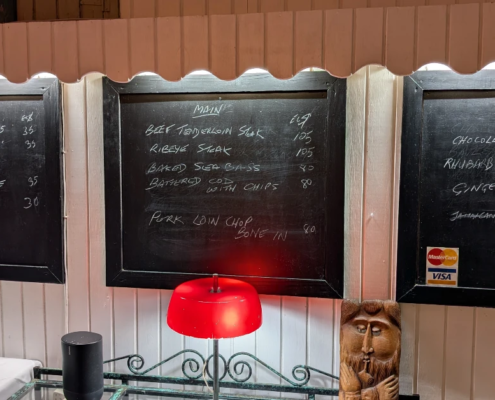 35
35
35
30
MAIN
EC$
BEEF TENDERLOIN STEAK 105
RIBEYE STEAK 105
BAKED SEA BASS 80
BATTERED COD WITH CHIPS 80
PORK LOIN CHOP
BONE IN 80
CHOCOL
RHUBARB
GINGE
MasterCard
VISA